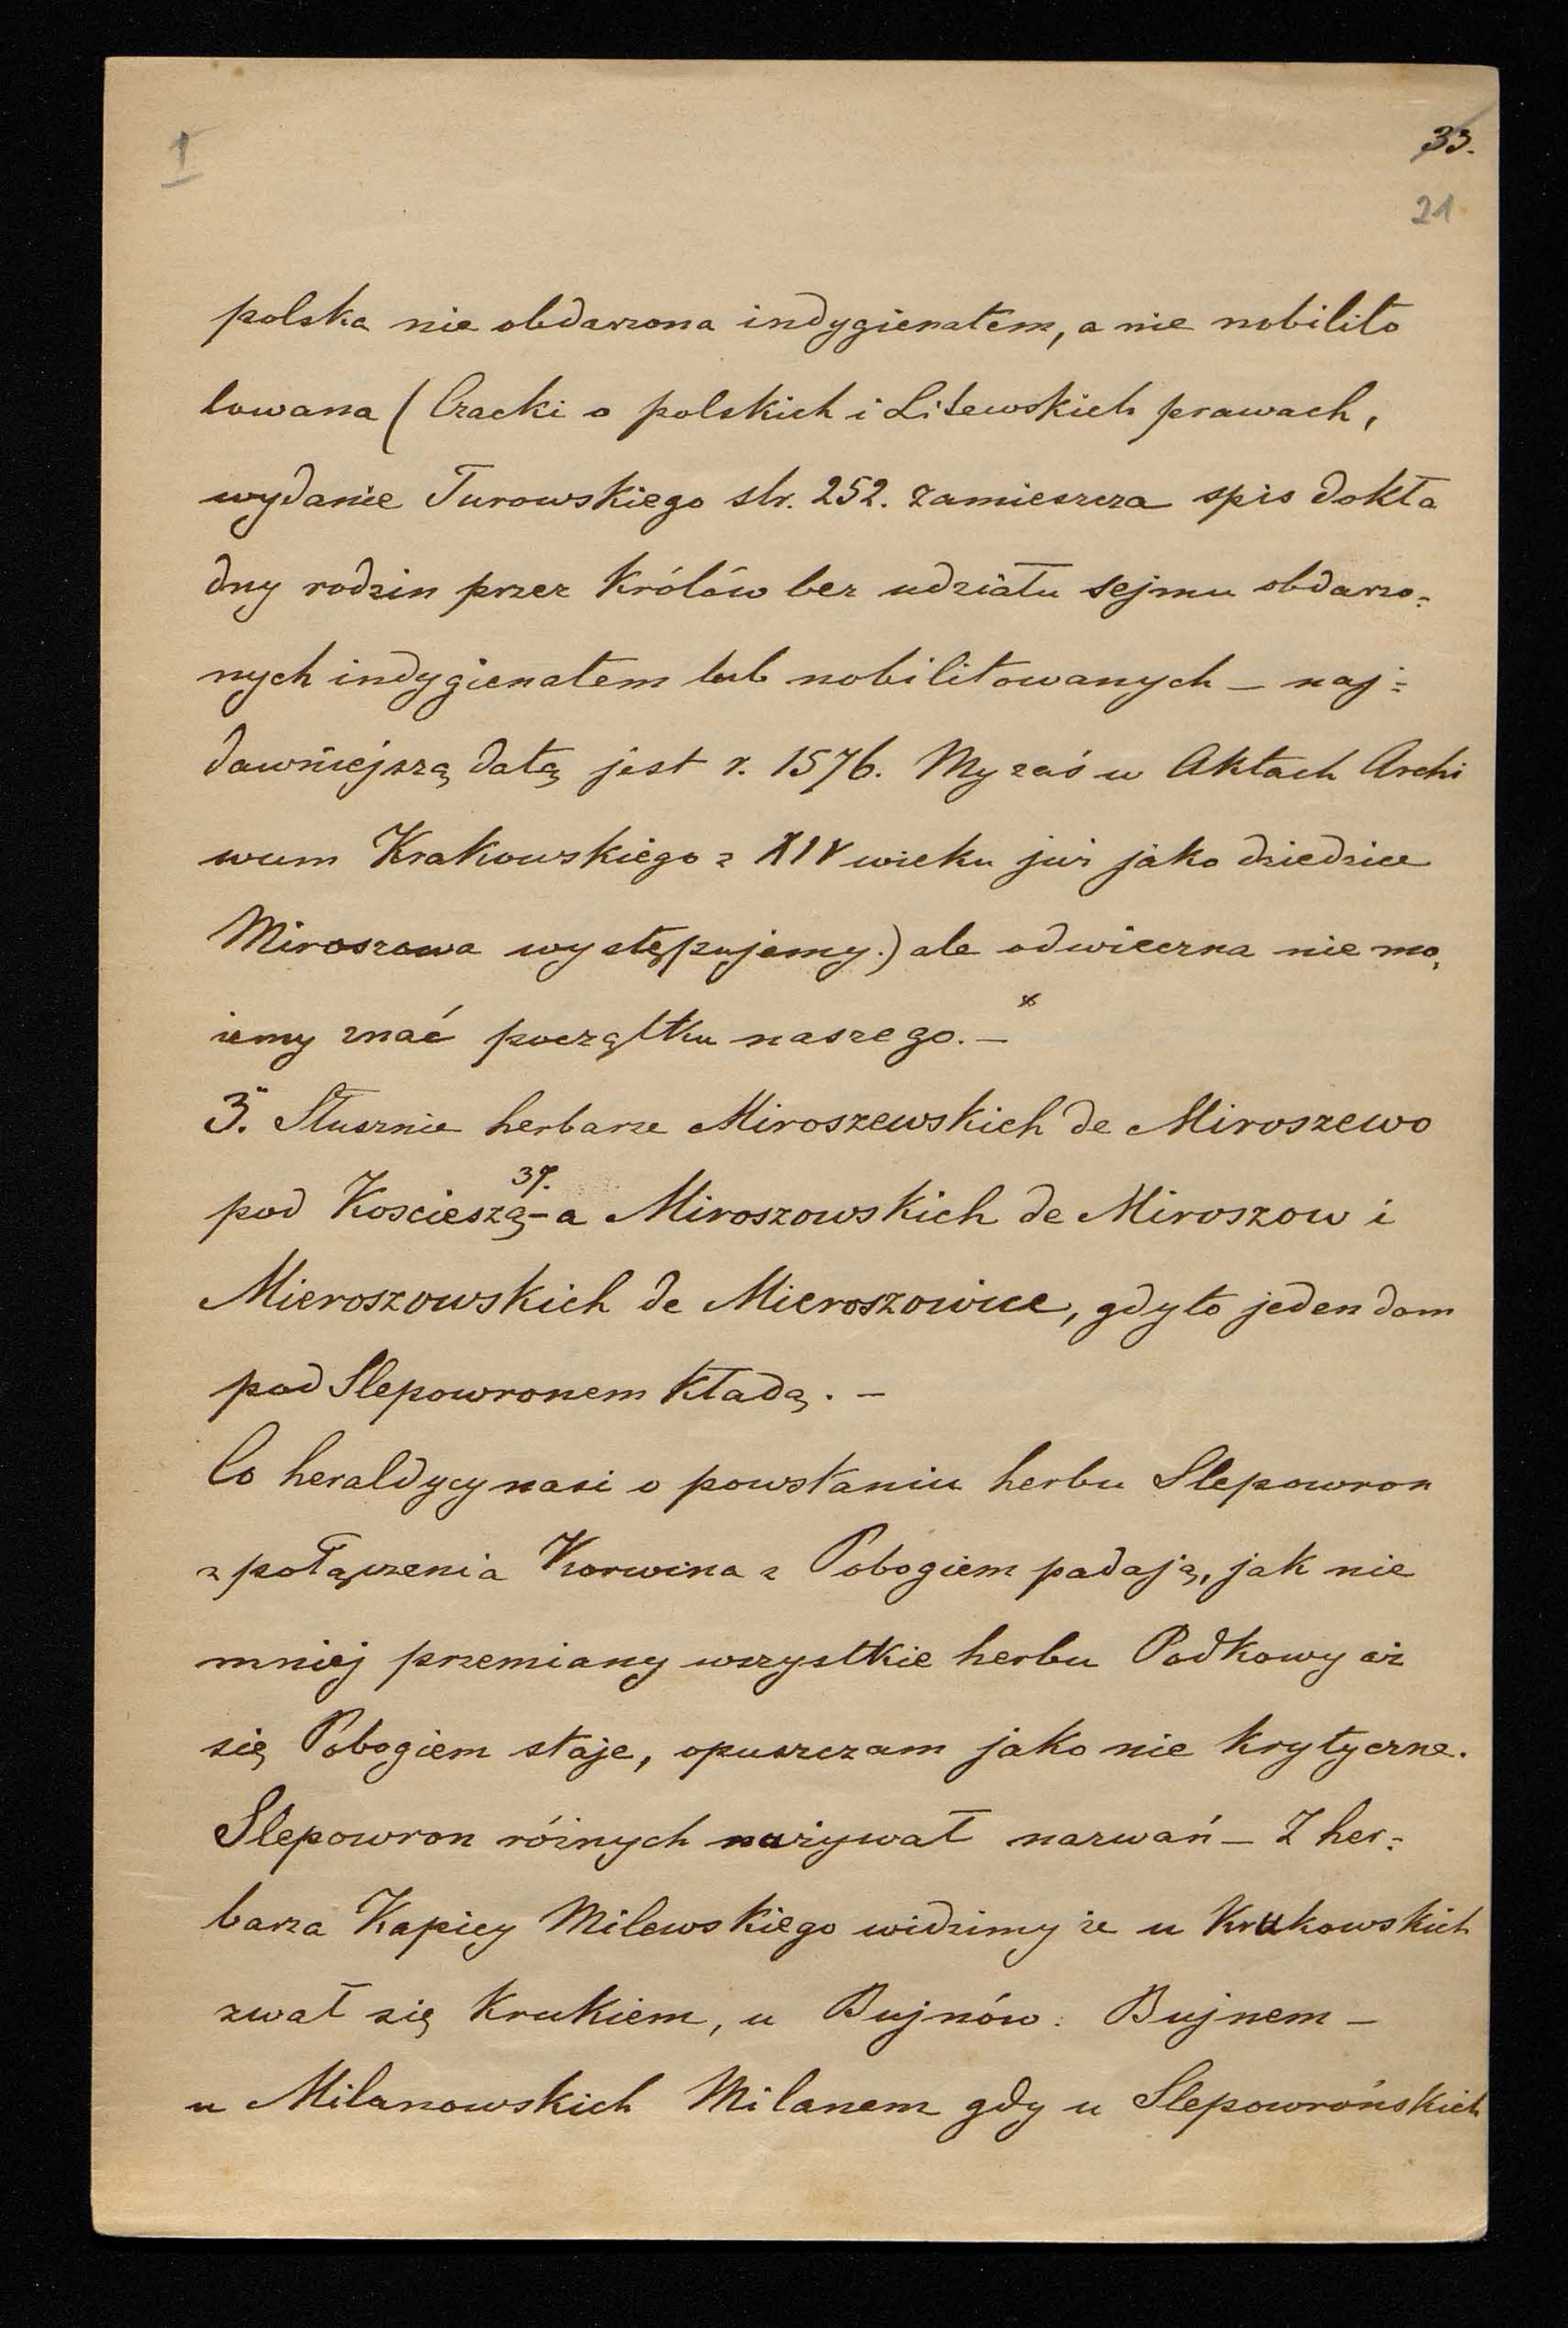 I
33.
21
polska nie obdarzona indygienatem, a nie nobilito
towana (Czacki o polskich i Litewskich prawach,
wydanie Turowskiego str. 252. zamieszcza spis dokła
dny rodzin przez Królów bez udziału sejmu obdarzo=
nych indygienatem lub nobilitowanych – naj=
dawniejszą datą jest r. 1576. My zaś w Aktach Archi
wum Krakowskiego z XIV wieku już jako dziedzice
Miroszowa występujemy.) ale odwieczna nie mo,
żemy znać początku naszego. – *
3. Słusznie herbarze Miroszewskich de Miroszewo
37.
pod Kościeszą – a Miroszowskich de Miroszow i
Mieroszowskich de Mieroszowice, gdyto jeden dom
pod Slepowronem kładą. –
Co heraldycy nasi o powstaniu herbu Slepowron
z połączenia Korwina z Pobogiem padają, jak nie
mniej przemiany wszystkie herbu Podkowy aż
się Pobogiem staje, opuszczam jako nie krytyczne.
Slepowron różnych nużywał nazwań – Z her=
barza Kapicy Milewskiego widzimy że u Krukowskich
zwał się Krukiem, u Bujnów: Bujnem –
u Milanowskich Milanem gdy u Slepowrońskich